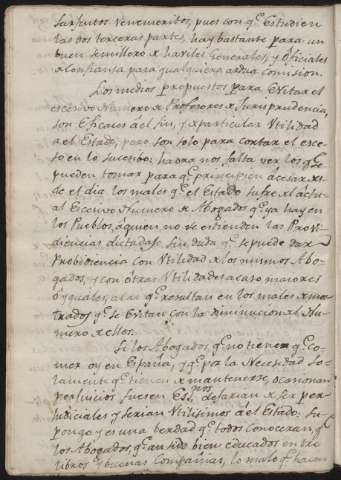 sargentos venemeritos, pues con qe. Estudien
las dos terceras partes, hay bastante para un
buen semillero x haviles Generales, y oficiales
x confianza para qualquiera ardua comision.
Los medios propuestos para Evitar el
excesivo Numero x Profesores x Jurisprudencia,
son Eficaces al fin, y x particular Vtilidad
al Estado, pero son solo para cortar el exce-
so en lo sucesibo: haora nos falta ver los qe. se
pueden tomar para qe. principien a cesar xs-
de el dia los males qe. el Estado sufre x el actu-
al Excesivo Numero x Abogados qe. ya hay en
los Pueblos, a quien no se estienden las Provi-
diencias dictadas. Sin duda qe. se puede dar
Probidencia con Vtilidad x los mismos Abo-
gados, y con otras Vtilidades acaso maiores
o yguales, al qe. resultan en los males
trados, y qe. se Evitan con la diminucion al Nu-
mero x ellos.
Si los Abogados, qe. no tienen qe. co-
mer oy en España, y qe. por la Necesidad So-
lamente qe. tienen x mantenerse, ocasionan
perjuicios fuesen dejarian x ser per-
judiciales y serian Vtilisimos al Estado: su-
pongo y es una berdad qe. todos conoceran, qe.
los Abogados, qe. an sido bien educados entre
libros, y buenas Compañias, lo malo qe. hacen